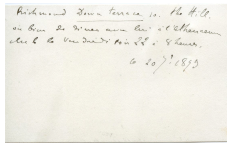 Richmond Down terrace 10. the Hill.
ou bien de diner avec lui à l'Athenaeum
club le Vendredi soir 22 à 8 heures.
le 20 7. 1893